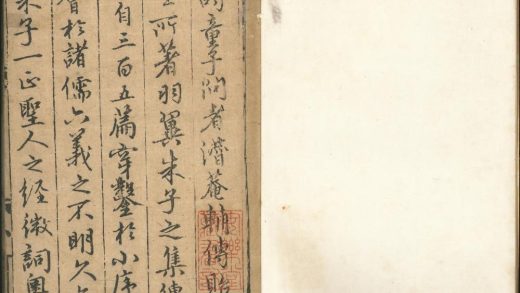 童子問者潛菴輔傳貽
所著羽翼朱子之集傳
自三百五篇穿鑿於小序
於諸儒六義之不明久
朱子一正聖人之經微詞奧